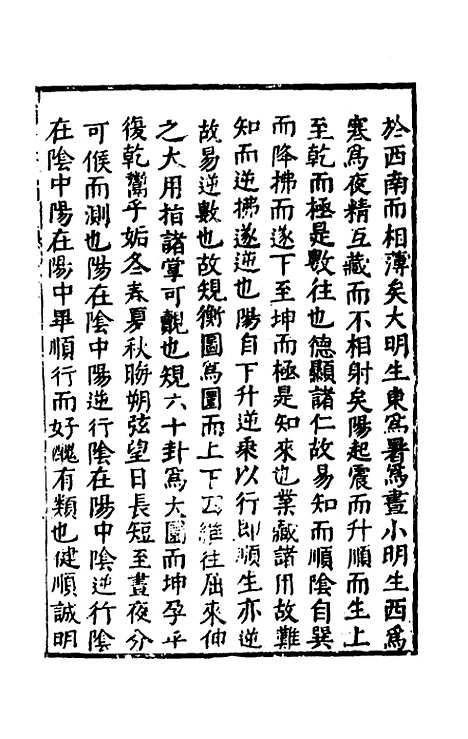 於西南而相薄矣大明生東爲暑爲晝小明生西爲
寒爲夜精互藏而不相射矣陽起震而升順而生上
至乾而極是數往也德顯諸仁故易知而順陰自巽
而降拂而遂下至坤而極是知來也業藏諸用故難
知而逆拂遂逆也陽自下升逆乘以行即順生亦逆
故易逆數也故規衡圖爲圓而上下四維往屈來伸
之大用指諸掌可覩也規六十卦爲大圓而坤孕乎
復乾鬻乎姤冬春夏秋晦朔弦望日長短至晝夜分
可候而測也陽在陰中陽逆行陰在陽中陰逆行陰
在陰中陽在陽中畢順行而好醜有類也健順誠明